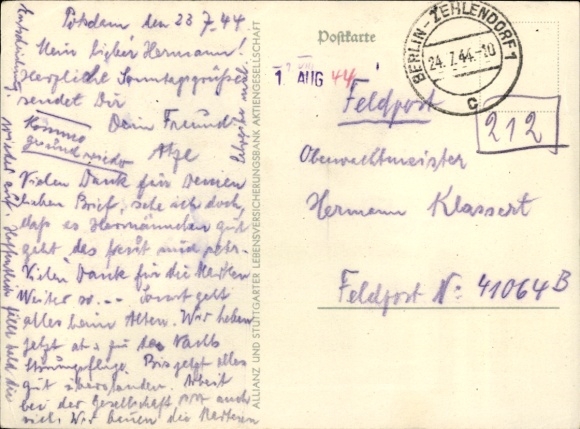 Potsdam den 23 7. 44
Mein lieber Hermann!
Herzliche Sonntagsgrüsse
sendet Dir
Dein Freund
Atze
Komme
gesund wieder
Vielen Dank für Deinen
lieben Brief, sehe ich doch,
dass es Hermännchen gut
geht das freut mich sehr.
Vielen Dank für die Marken
Weiter so... Sonst geht
alles beim Alten. Wir haben
jetzt ab u. zu des Nachts
Bis jetzt alles
gut überstanden. Arbeit
bei der Gesellschaft auch
viel. Wir bauen die
wieder auf. Hoffentlich fällt bald die
Entscheidung
Schreibe mal.
ALLIANZ UND STUTTGARTER LEBENSVERSICHERUNGSBANK AKTIENGESELLSCHAFT
Postkarte
BERLIN-ZEHLENDORF 1
24.7.44.-10
c
1. AUG 44
Feldpost
212
Oberwachtmeister
Hermann Klassert
Feldpost Nr: 41064 B